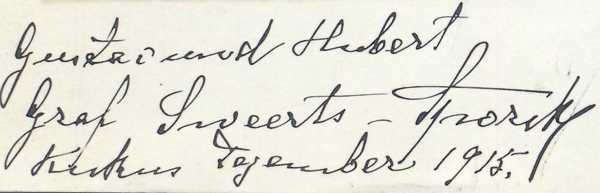 Gustav und Hubert
Graf Sweerts-Sporck
Kukus Dezember 1915.